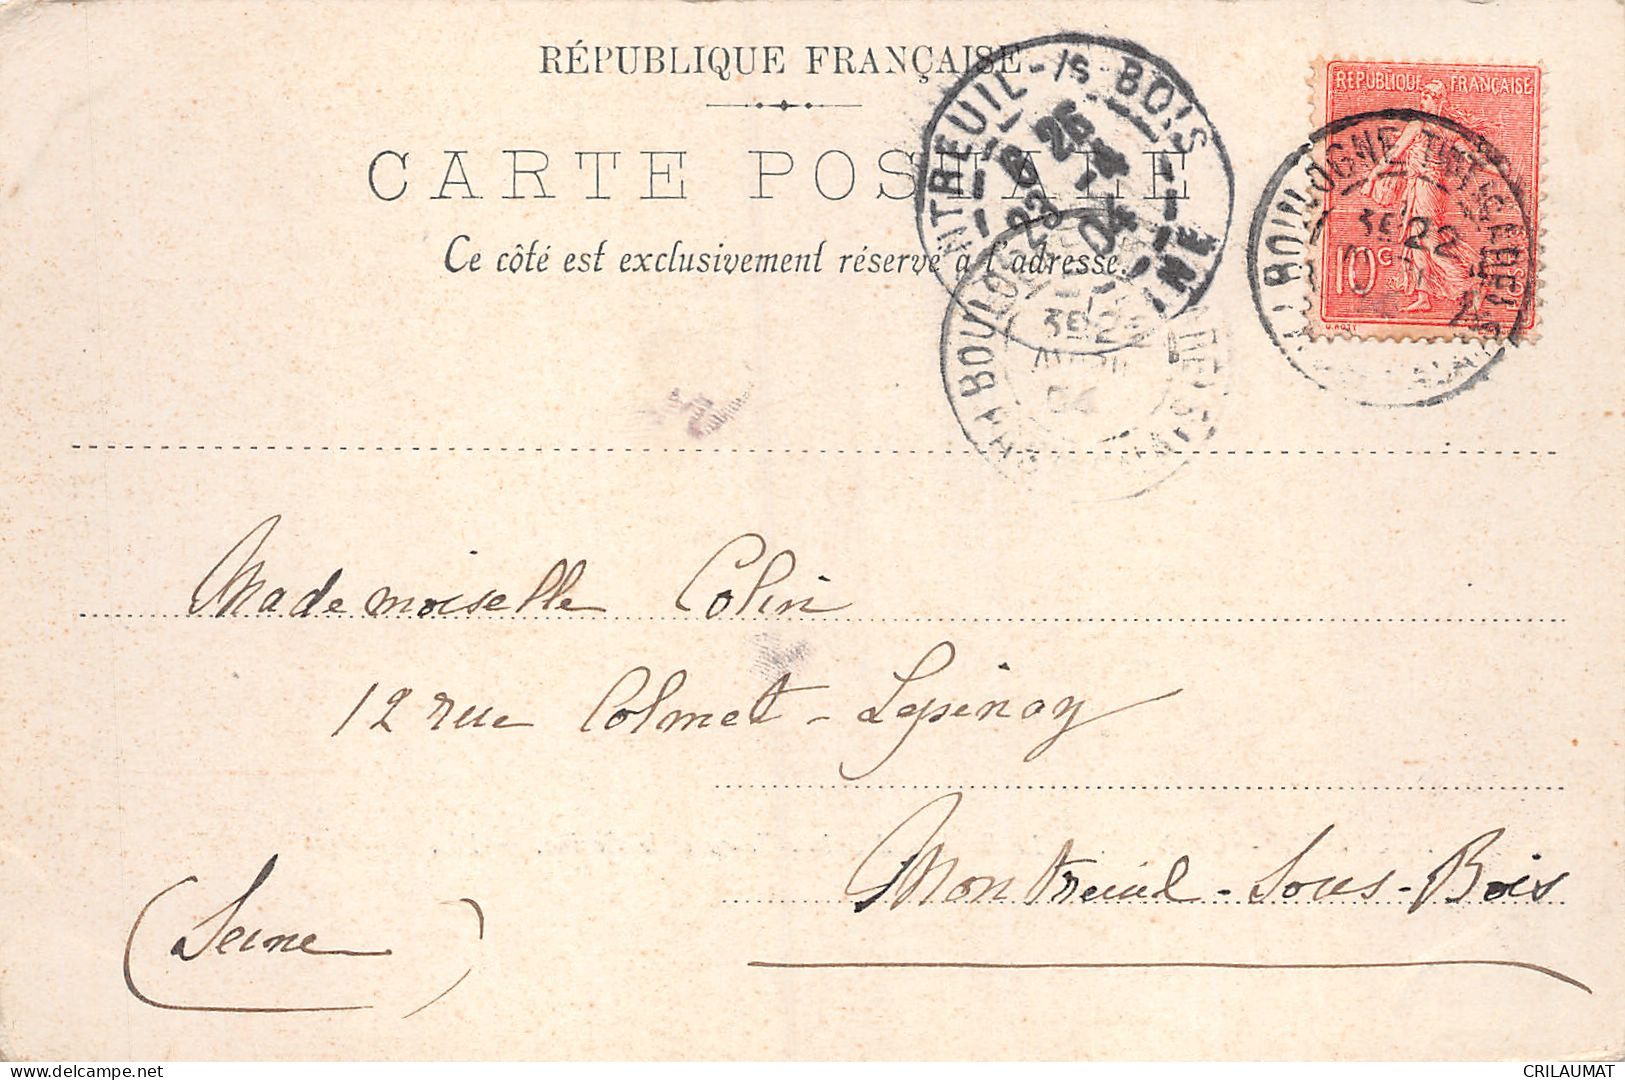 RÉPUBLIQUE FRANÇAISE
CARTE POSTALE
Ce côté est exclusivement réservé à l'adresse.
MONTREUIL-/S-BOIS
8 26
23 -4
04
SEINE
REPUBLIQUE FRANÇAISE
10 c
POSTES
O. ROTY
BOULOGNE
3E 22
BOULOGNE
3E 22
AVRIL
04
Mademoiselle Colin
12 rue Colmet-Lépinay
Montreuil-Sous-Bois
(Seine)
delcampe.net
CRILAUMAT